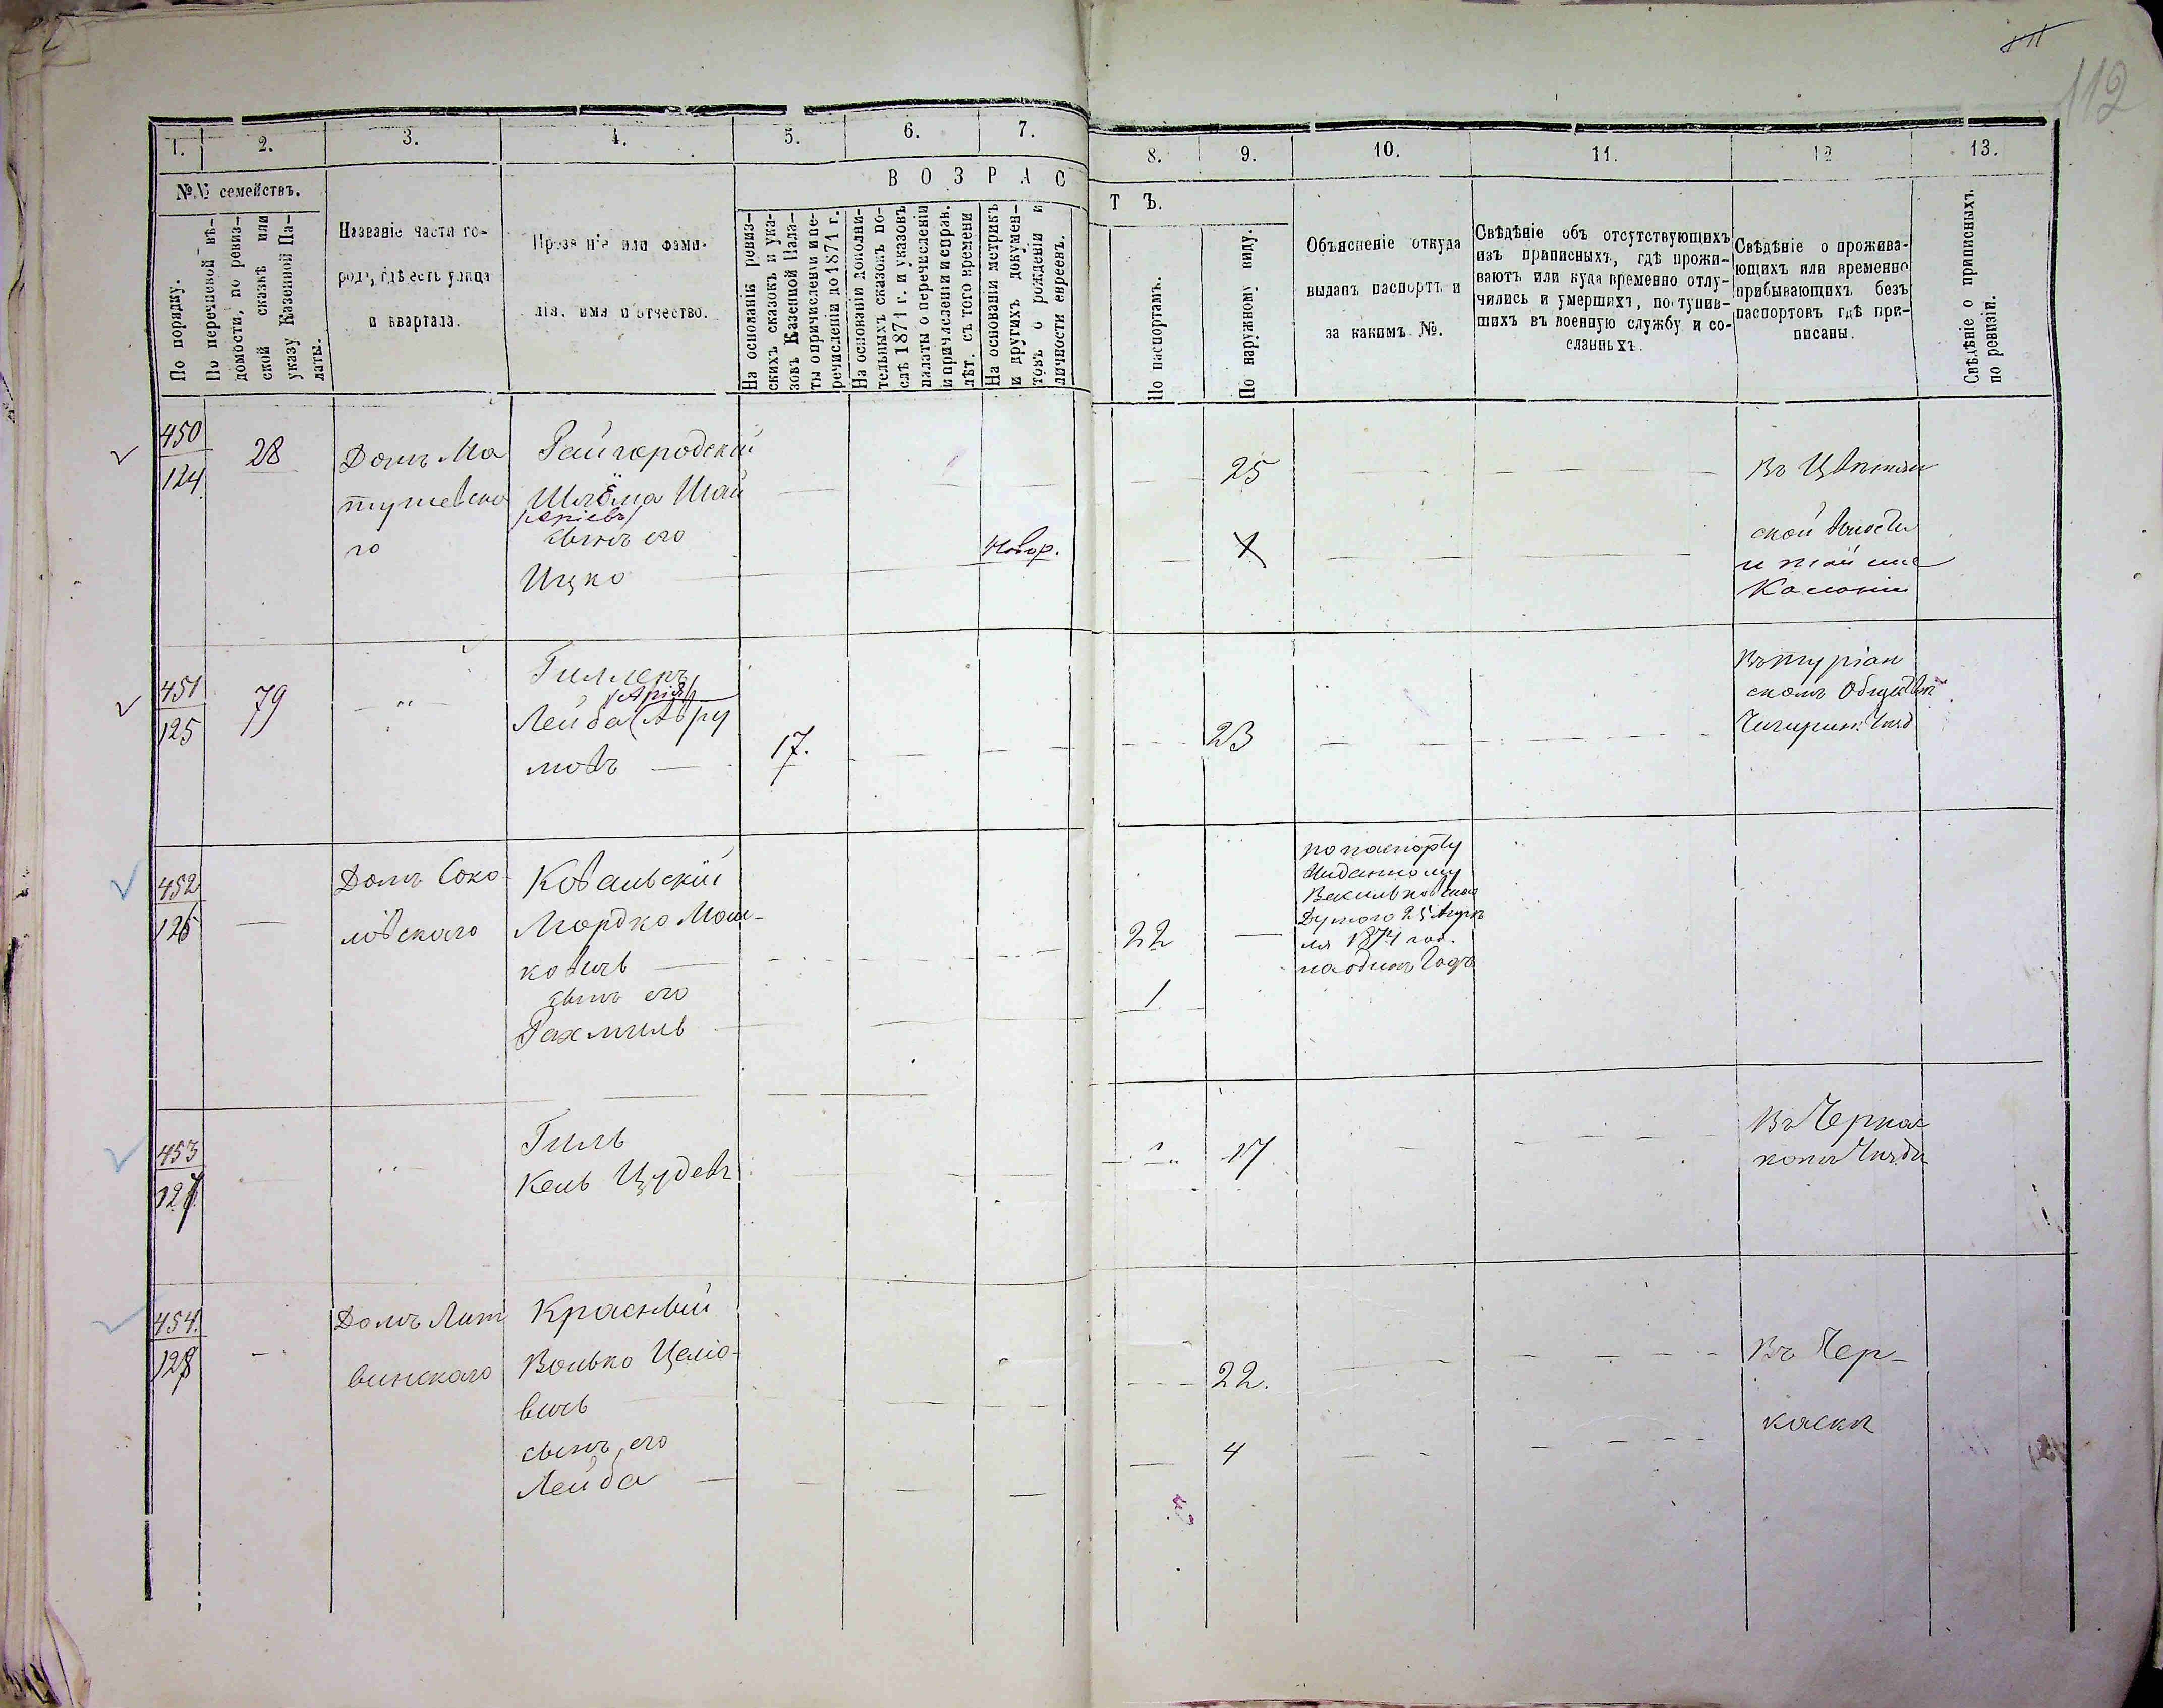 111
112
1.
2.
3.
4.
5.
6.
7.
8.
9.
10.
11.
12
13.
№№ семействъ.
По порядку.
По переписной вѣ-
домости, по ревиз-
ской сказкѣ или
указу Казенной Па-
латы.
Названіе части го-
рода, гдѣ есть улица
и квартала.
Прозваніе или фами-
лія, имя и отчество.
ВОЗРАС
ТЪ.
На основаніи ревиз-
скихъ сказокъ и ука-
зовъ Казенной Пала-
ты о причисленіи и пе-
речисленіи до 1871 г.
На основаніи дополни-
тельныхъ сказокъ по-
слѣ 1871 г. и указовъ
палаты о перечисленіи
и причисленіи и справ.
лѣт. съ того времени
На основаніи метрикъ
и другихъ докумен-
товъ о рожденіи и
личности евреевъ.
По паспортамъ.
По наружному виду.
Объясненіе откуда
выданъ паспортъ и
за какимъ №.
Свѣдѣніе объ отсутствующихъ
изъ приписныхъ, гдѣ прожи-
ваютъ или куда временно отлу-
чились и умершихъ, поступив-
шихъ въ военную службу и со-
сланныхъ.
Свѣдѣніе о прожива-
ющихъ или временно
прибывающихъ безъ
паспортовъ гдѣ при-
писаны.
Свѣдѣніе о приписныхъ
по ревизіи.
450
124
28
Домъ Ма
тушевска
го
Райгородскій
Шлёма Шай
сынъ его
Ицко
Новор.
25
Въ
ской волости
Колоніи
451
125
79
"
Гиллеръ
(Арія)
Лейба (Авру
мовъ
17.
23
скомъ Обществѣ
Чигирин. Уѣзд
452
126
Домъ Соко-
ловскаго
Ковальскій
Мордко Мош-
ковичъ
сынъ его
Рахмиль
22
1
по паспорту
выданному
Васильковскою
Думою 25 Апрѣ
ля 1874 год.
на одинъ годъ
453
127
"
Гиль
Кель Цудевъ
17
Въ Черкас
комъ Уѣздѣ
454.
128
Домъ Лит
винскаго
Красный
Волько Целіо-
вичъ
сынъ его
Лейба
22.
4
Въ Чер-
касѣ